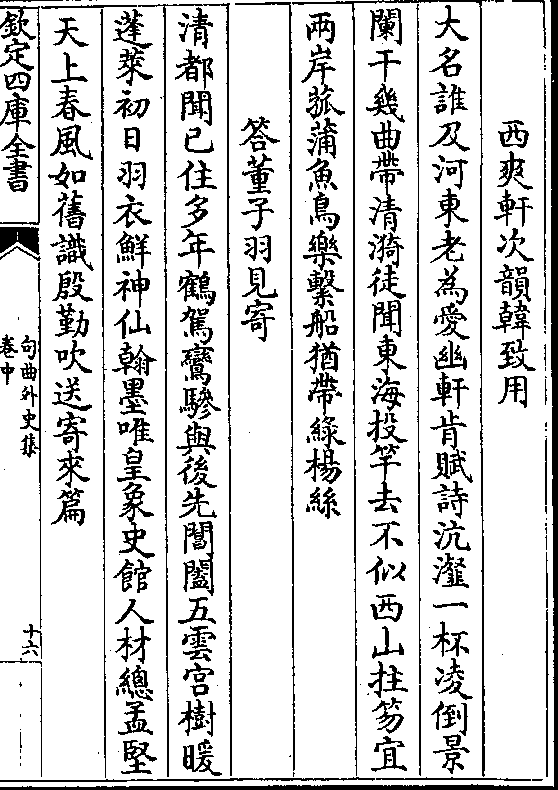 西爽軒次韻韓致用
大名誰及河東老為愛幽軒肯賦詩沆瀣一杯凌倒景
闌干幾曲帶清漪徒聞東海投竿去不似西山拄笏宜
兩岸菰蒲魚鳥樂繫船猶帶綠楊絲
答董子羽見寄
清都聞已住多年鶴駕鸞驂與後先閶闔五雲宮樹暖
蓬萊初日羽衣鮮神仙翰墨唯皇象史館人材總孟堅
天上春風如舊識殷勤吹送寄來篇
欽定四庫全書
句曲外史集
卷中
十六